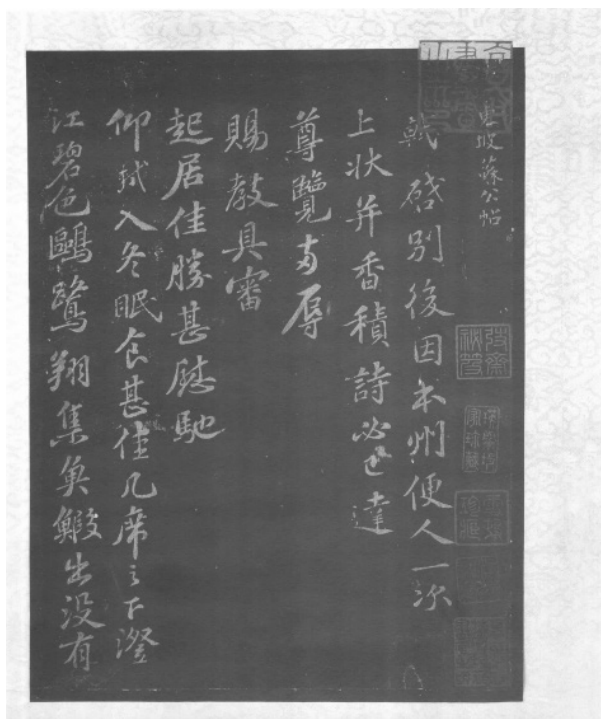 東坡蘇公帖
軾啓別後因本州便人一次
上狀并香積詩必已達
尊覽專辱
賜教具審
起居佳勝甚慰馳
仰軾入冬眠食甚佳几席之下澄
江碧色鷗鷺翔集魚鰕出沒有